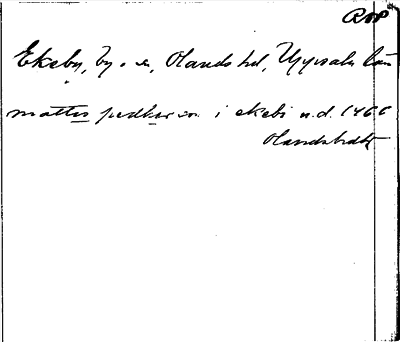 RAP
Ekeby, by o. sn, Olands hd, Uppsala län
mattis pedhersson i ekebi n.d. 1466
Olandsbidr